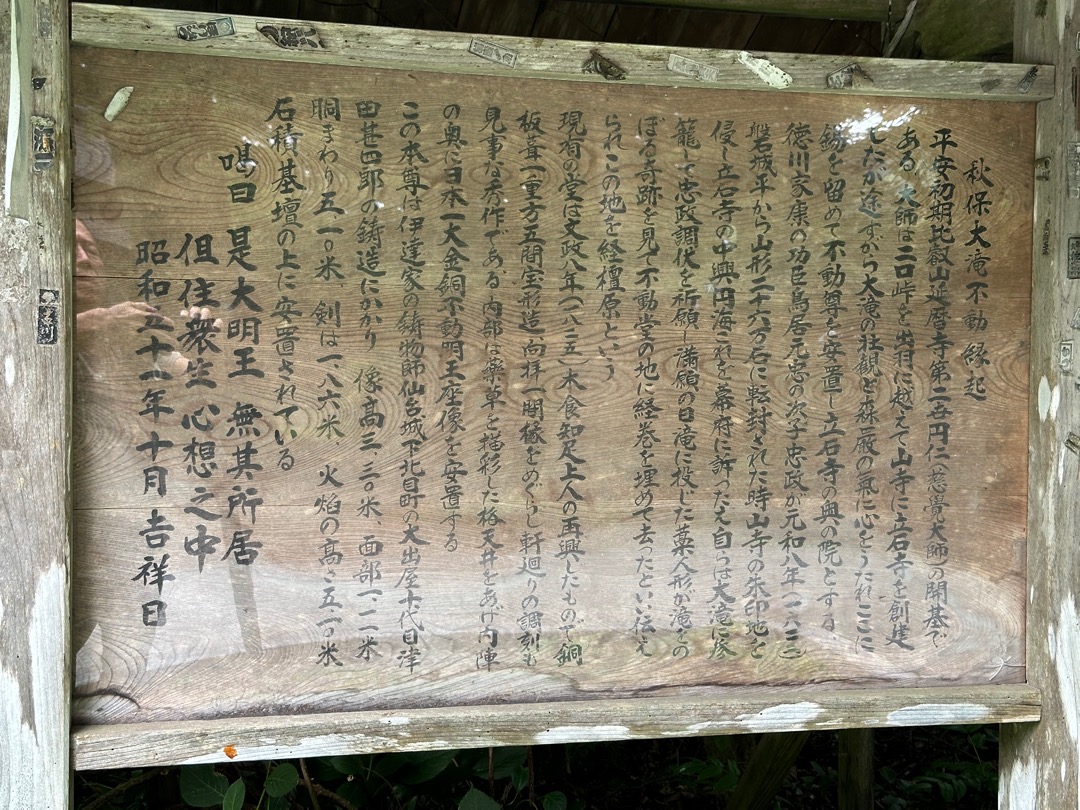 秋保大滝不動縁起
平安初期比叡山延暦寺第三五円仁(慈覺大師)の開基で
ある 大師は二口峠を出羽に越えて山寺に立石寺を創建
したが途すがら大滝の壮観と森厳の氣に心をうたれここに
錫を留めて不動尊を安置し立石寺の奥の院とする
徳川家康の功臣鳥居元忠の次子忠政が元和八年(一六二二)
磐城平から山形二十六万石に転封された時山寺の朱印地を
侵し立石寺の中興円海これを幕府に訴ったえ自らは大滝に参
籠して忠政調伏を祈願し満願の日滝に投じた藁人形が滝をの
ぼる奇跡を見て不動堂の地に経巻を埋めて去ったといい伝え
られこの地を経檀原という
現有の堂は文政八年(一八二五)木食知足上人の再興したもので銅
板葺二重方五間宝形造向拝一間縁をめぐらし軒廻りの調刻も
見事な秀作である 内部は藥草を描彩した格天井をあげ内陣
の奥に日本一大金銅不動明王座像を安置する
この本尊は伊達家の鋳物師仙台城下北目町の大出屋十代目津
田甚四郎の鋳造にかかり 像高三.三〇米、面部一.一一米
胴まわり五.一〇米、剣は一.八六米、火焰の高さ五.一〇米
石積基壇の上に安置されている
喝曰 是大明王 無其所居
但住衆生 心想之中
昭和五十一年十月吉祥日